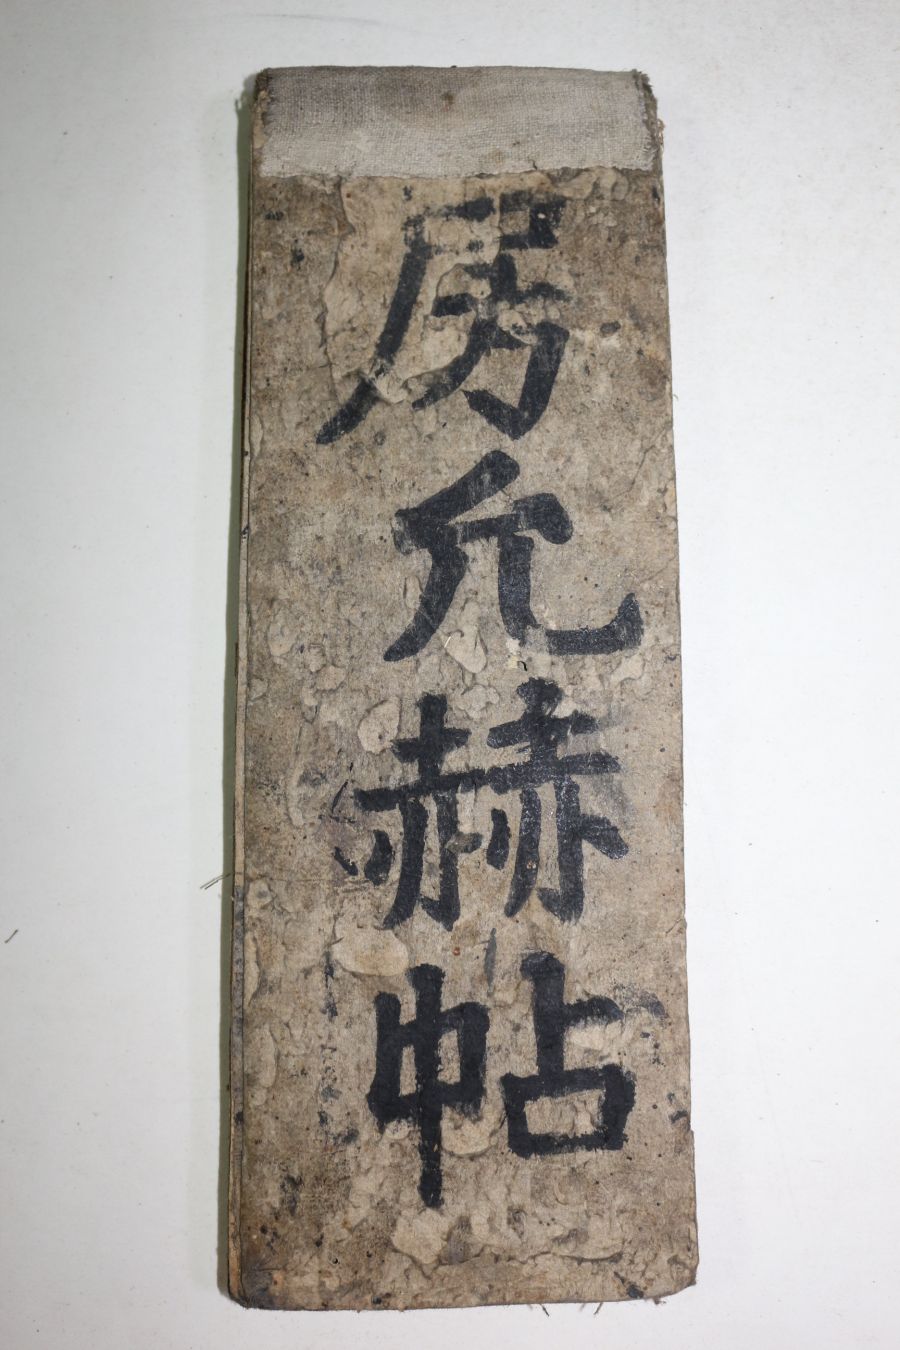 房允赫帖